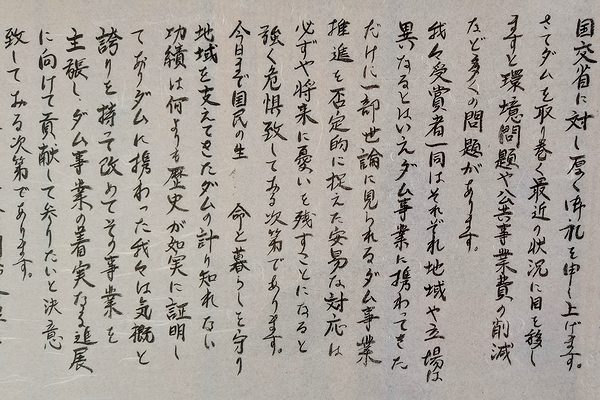 国交省に対し厚く御礼を申し上げます。
さてダムを取り巻く最近の状況に目を移し
ますと環境問題や公共事業費の削減
など多くの問題があります。
我々受賞者一同はそれぞれ地域や立場は
異なるとはいえダム事業に携わってきた
だけに一部世論に見られるダム事業
推進を否定的に捉えた安易な対応は
必ずや将来に憂いを残すことになると
強く危惧致してある次第であります。
今日まで国民の生 命と暮らしを守り
地域を支えてきたダムの計り知れない
功績は何よりも歴史が如実に証明し
ておりダムに携わった我々は気概と
誇りを持って改めてその事業を
主張し、ダム事業の着実なる進展
に向けて貢献して参りたいと決意
致してある次第であります。